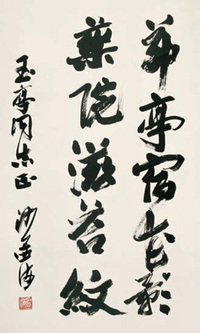 茅亭宿花影
药院滋苔纹
玉亭同志正 沙孟海